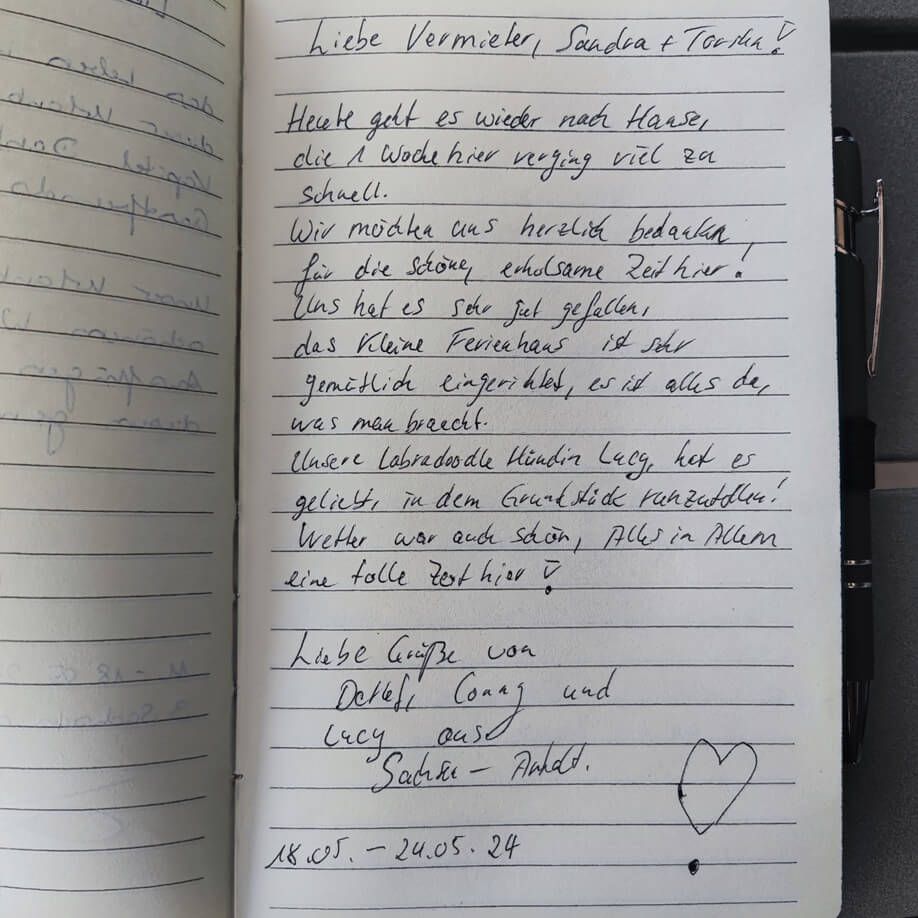 Liebe Vermieter, Sandra + Torsten!
Heute geht es wieder nach Hause,
die 1 Woche hier verging viel zu
schnell.
Wir möchten uns herzlich bedanken
für die schöne, erholsame Zeit hier!
Uns hat es sehr gut gefallen,
das kleine Ferienhaus ist sehr
gemütlich eingerichtet, es ist alles da,
was man braucht.
Unsere Labradoodle Hündin Lucy, hat es
geliebt, in dem Grundstück ranzutollen!
Wetter war auch schön, Alles in Allem
eine tolle Zeit hier!
Liebe Grüße von
Detlef, Conny und
Lucy aus
Sachsen-Anhalt.
18.05. – 24.05.24